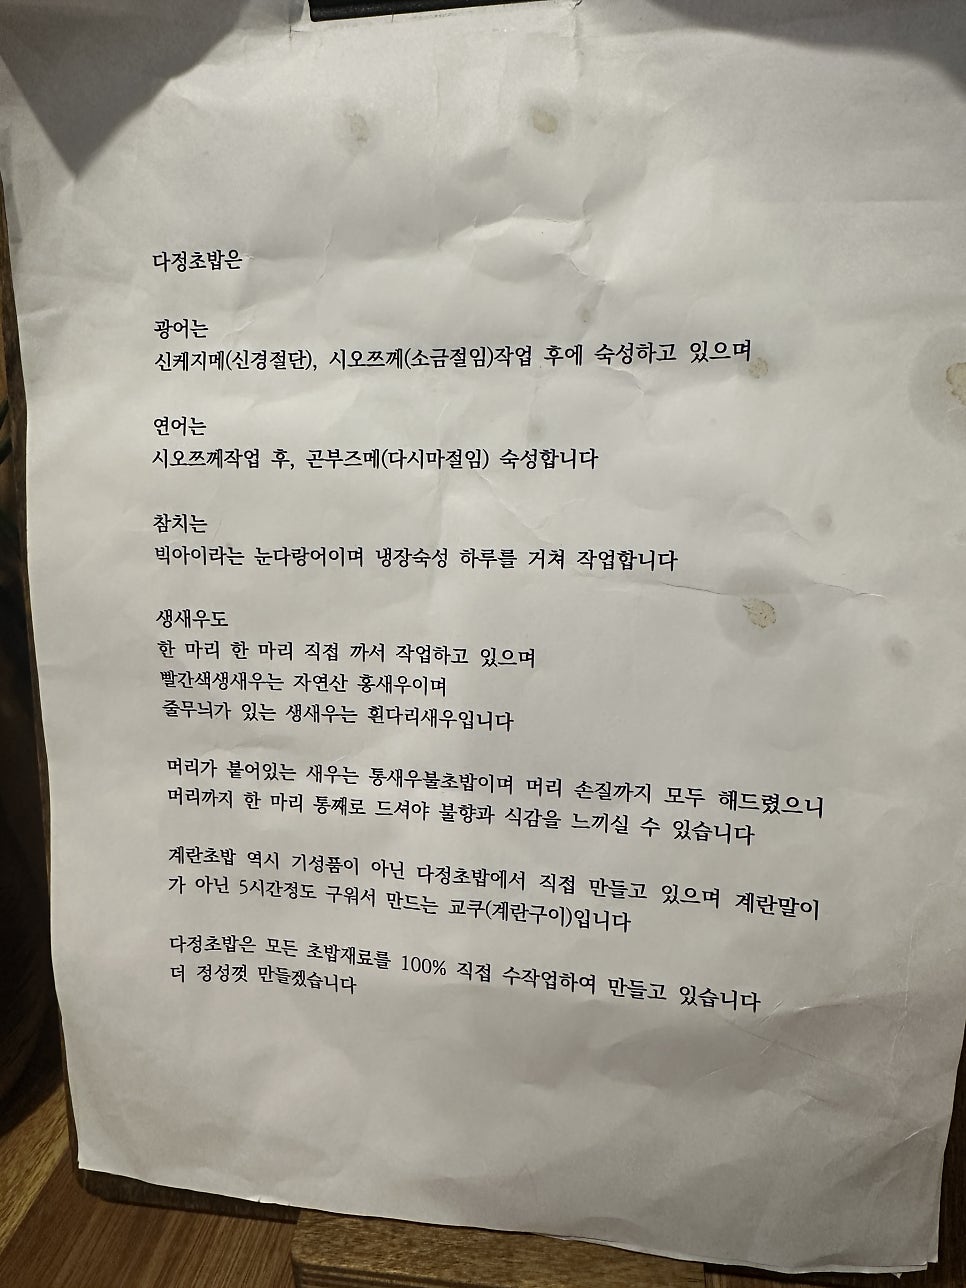 다정초밥은
광어는
신케지메(신경절단), 시오쯔께(소금절임)작업 후에 숙성하고 있으며
연어는
시오쯔께작업 후, 곤부즈메(다시마절임) 숙성합니다
참치는
빅아이라는 눈다랑어이며 냉장숙성 하루를 거쳐 작업합니다
생새우도
한 마리 한 마리 직접 까서 작업하고 있으며
빨간색생새우는 자연산 홍새우이며
줄무늬가 있는 생새우는 흰다리새우입니다
머리가 붙어있는 새우는 통새우불초밥이며 머리 손질까지 모두 해드렸으니
머리까지 한 마리 통째로 드셔야 불향과 식감을 느끼실 수 있습니다
계란초밥 역시 기성품이 아닌 다정초밥에서 직접 만들고 있으며 계란말이
가 아닌 5시간정도 구워서 만드는 교쿠(계란구이)입니다
다정초밥은 모든 초밥재료를 100% 직접 수작업하여 만들고 있습니다
더 정성껏 만들겠습니다